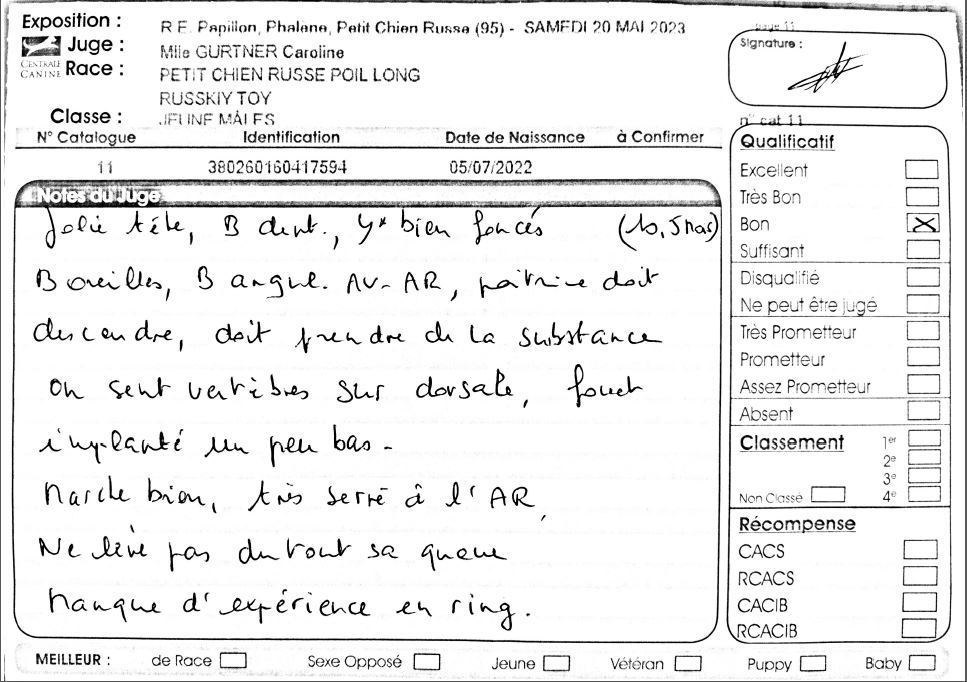 Exposition : R.E. Papillon, Phalène, Petit Chien Russe (95) - SAMEDI 20 MAI 2023
page 11
CENTRALE CANINE
Juge : Mlle GURTNER Caroline
Race : PETIT CHIEN RUSSE POIL LONG
RUSSKIY TOY
Classe : JEUNE MÂLES
Signature :
n° cat 11
N° Catalogue Identification Date de Naissance à Confirmer
11 380260160417594 05/07/2022
Notes du Juge
Jolie tête, B dent., Yx bien foncés (10,5 mois)
B oreilles, B angul. AV-AR, poitrine doit
descendre, doit prendre de la substance
on sent vertèbres sur dorsale, fouet
implanté un peu bas-
Marche bien, très serré à l'AR,
Ne lève pas du tout sa queue
Manque d'expérience en ring.
Qualificatif
Excellent
Très Bon
Bon X
Suffisant
Disqualifié
Ne peut être jugé
Très Prometteur
Prometteur
Assez Prometteur
Absent
Classement 1er
2e
3e
Non Classé 4e
Récompense
CACS
RCACS
CACIB
RCACIB
MEILLEUR : de Race Sexe Opposé Jeune Vétéran Puppy Baby